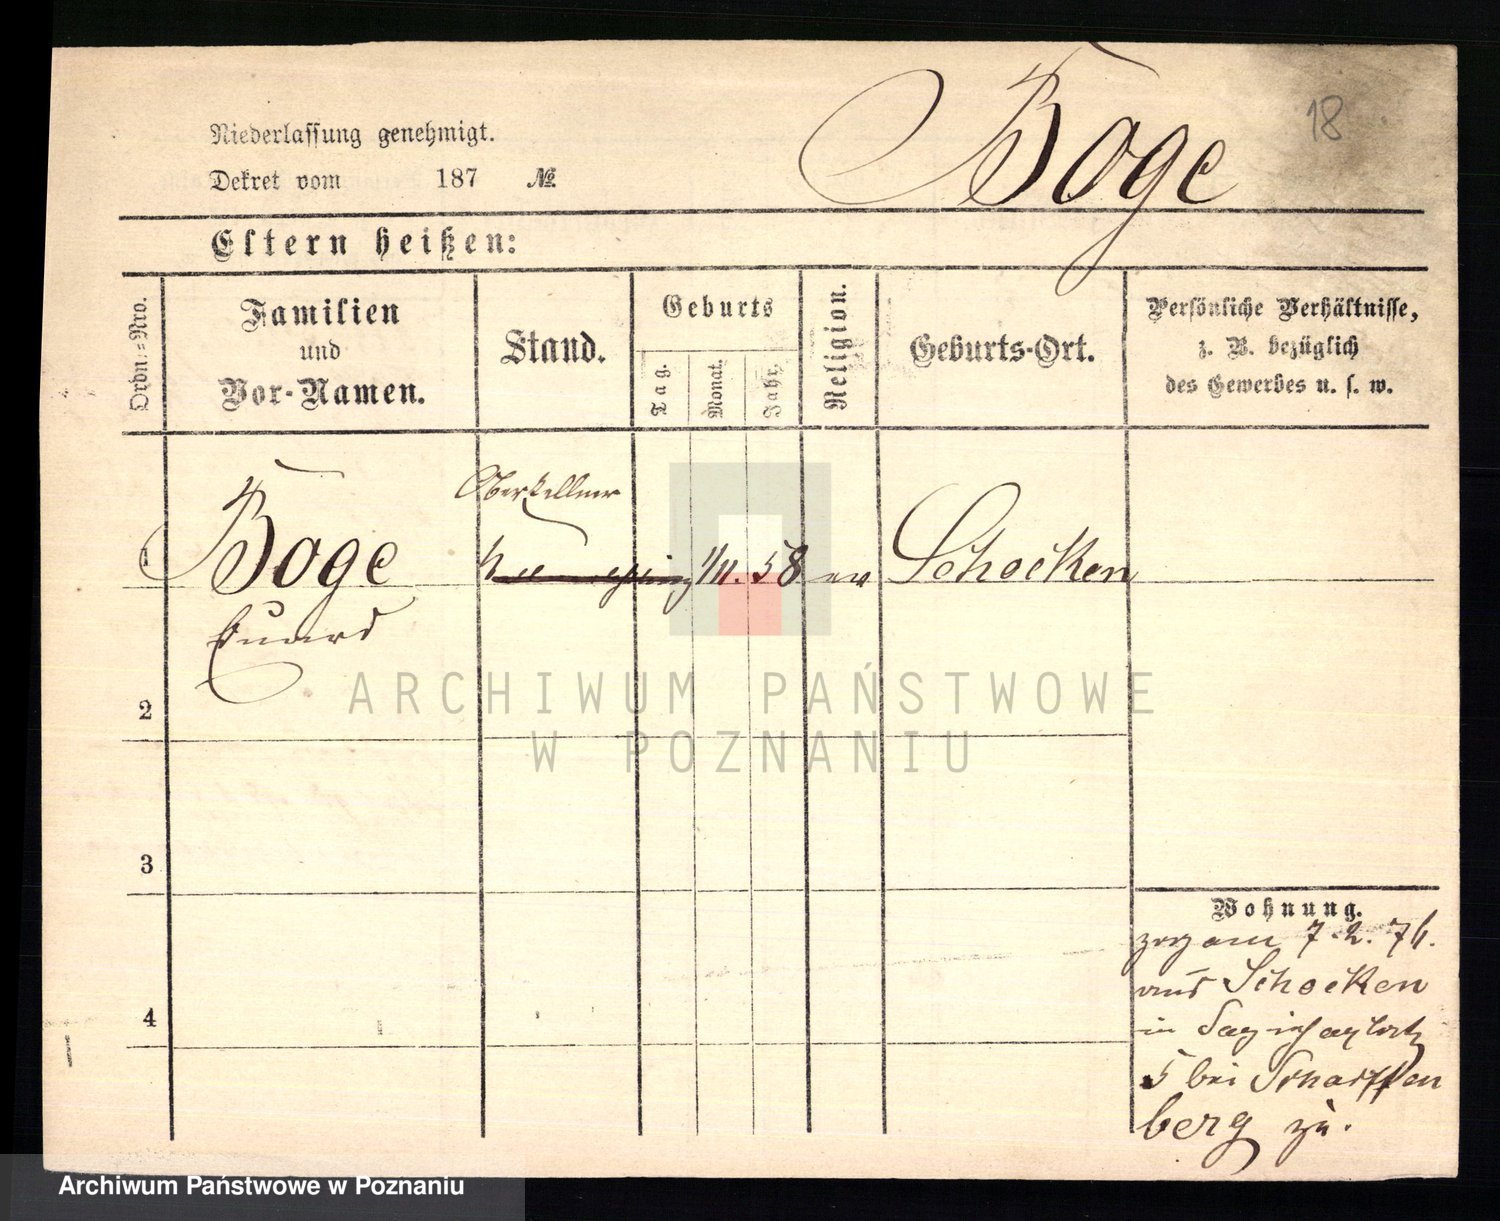 Böge
18
Niederlassung genehmigt.
Dekret vom 187 №
Eltern heißen:
Ordn.-Nro.
Familien
und
Vor-Namen.
Stand.
Geburts
Tag.
Monat.
Jahr.
Religion.
Geburts-Ort.
Persönliche Verhältnisse,
z. B. bezüglich
des Gewerbes u. s. w.
Oberkellner
1 Böge 1/11. 58 ev Schocken
Eduard
2
ARCHIWUM PAŃSTWOWE
W POZNANIU
3
Wohnung.
zog am 7.2.76.
aus Schocken
4
in
5 bei Scharffen
berg zu.
Archiwum Państwowe w Poznaniu